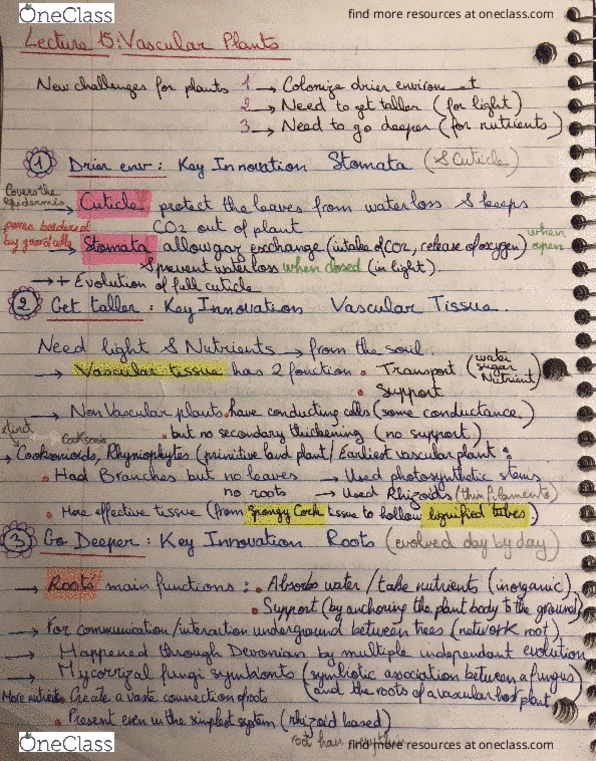 OneClass
find more resources at oneclass.com
Lecture 15: Vascular Plants
New challenges for plants 1 → Colonize drier environment
2 → Need to get taller (for light)
3 → Need to go deeper (for nutrients)
① Drier env: Key Innovation Stomata (& Cuticle)
Covers the epidermis
→ Cuticle protect the leaves from water loss & keeps
CO2 out of plant
pores bordered by guard cells
→ Stomata allow gaz exchange (intake of CO2, release of oxygen) when open
& prevent water loss when closed (in light).
→ + Evolution of full cuticle
② Get taller: Key Innovation Vascular Tissue.
Need light & Nutrients → from the soil.
→ Vascular tissue has 2 fonction • Transport (water sugar Nutrient)
• Support
→ Non Vascular plants • have conducting cells (some conductance.)
• but no secondary thickening (no support)
Cooksonia
→ Cooksonioids, Rhyniophytes (primitive land plant / Earliest vascular plant:
• Had Branches but no leaves → Used photosynthetic stems
no roots → Used Rhizoids (thin filaments)
• More effective tissue (from spongy Cork tissue to hollow lignified tubes)
③ Go Deeper: Key Innovation Roots (evolved day by day)
→ Roots main functions: • Absorbs water / take nutrients (inorganic)
• Support (by anchoring the plant body to the ground)
→ For communication/interaction underground between trees (network root)
→ Happened through Devonian by multiple independant evolution
→ Mycorrizal fungi symbionts (symbiotic association between a fungus
and the roots of a vascular host plant
More nutrients • Create a vaste connection of roots
• Present even in the simplest system (rhizoid based)
root hair
OneClass
find more resources at oneclass.com